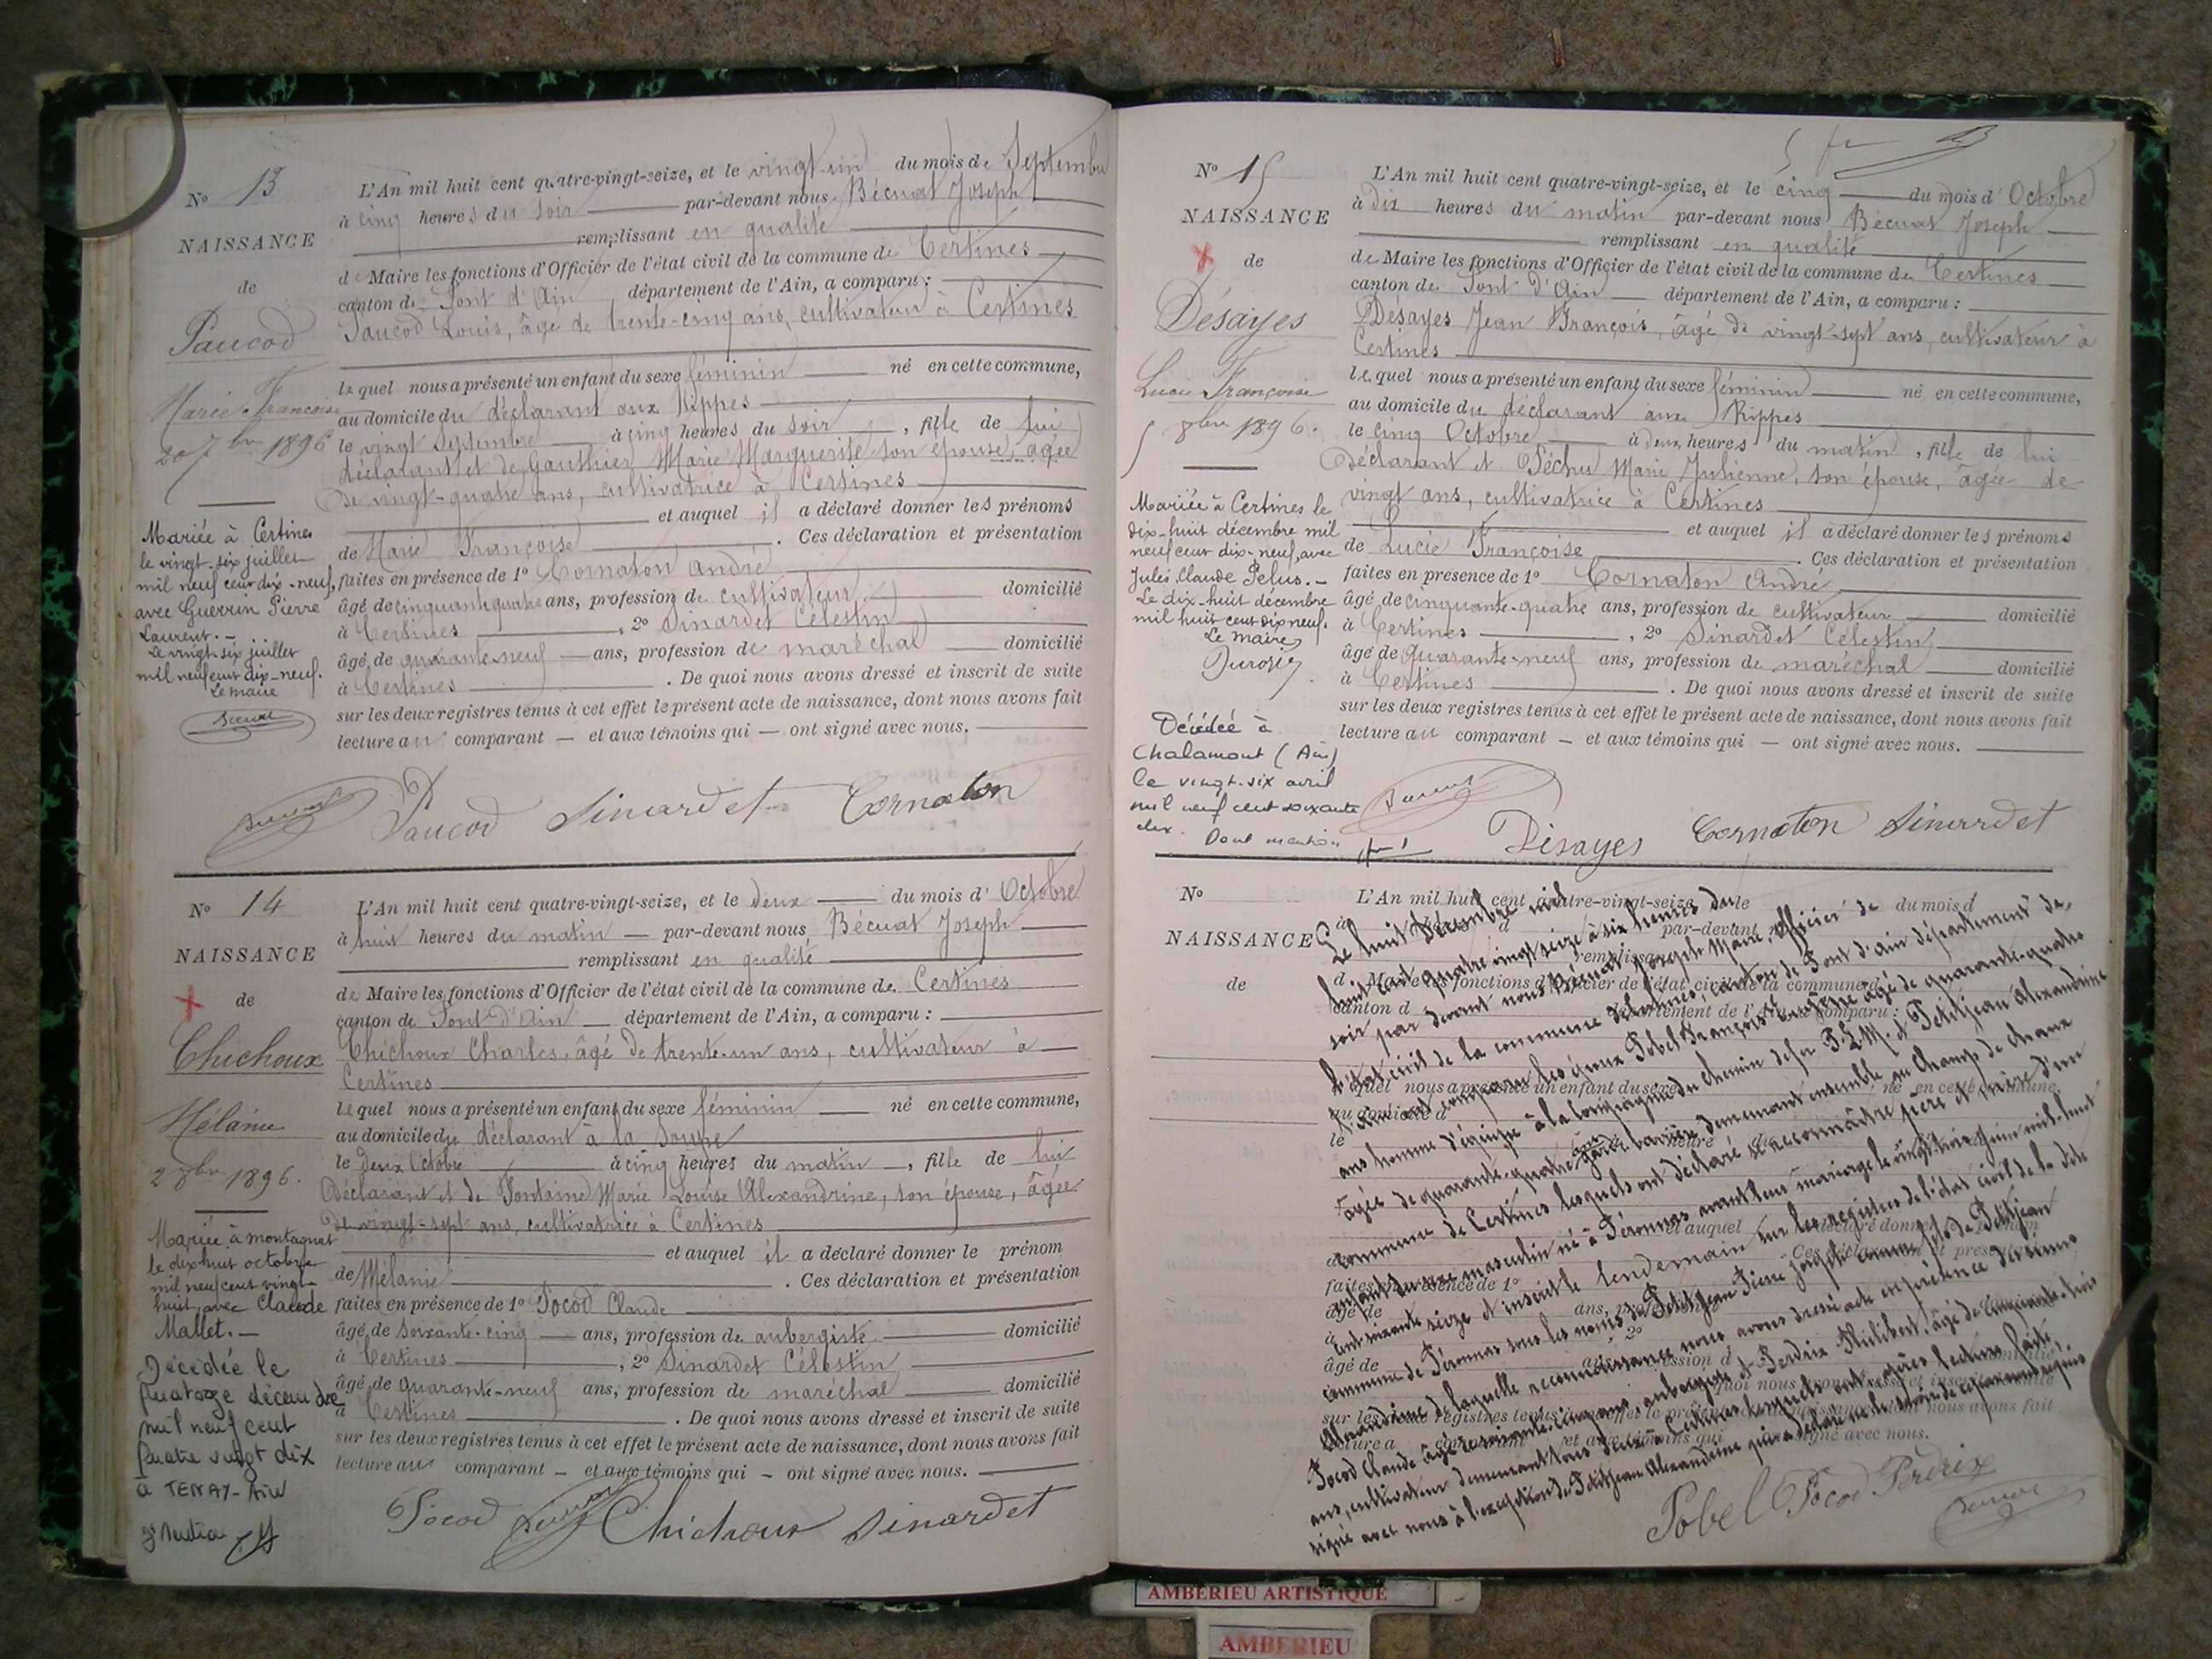 No 13
NAISSANCE
de
Paucod
Marie Françoise
20 7bre 1896
Mariée à Certines
le vingt-six juillet
mil neuf cent dix-neuf,
avec Guerrin Pierre
Laurent. -
Le vingt-six juillet
mil neuf cent dix-neuf.
Le maire
L'An mil huit cent quatre-vingt-seize, et le vingt-un du mois de Septembre
à cinq heures du soir par-devant nous Bécuat Joseph
remplissant en qualité
de Maire les fonctions d'Officier de l'état civil de la commune de Certines
canton de Pont d'Ain département de l'Ain, a comparu :
Paucod Louis, âgé de trente-cinq ans, cultivateur à Certines
lequel nous a présenté un enfant du sexe féminin né en cette commune,
au domicile du déclarant aux Rippes
le vingt Septembre à cinq heures du soir, fille de lui
déclarant et de Gauthier Marie Marguerite son épouse, âgée
de vingt-quatre ans, cultivatrice à Certines
et auquel il a déclaré donner les prénoms
de Marie Françoise. Ces déclaration et présentation
faites en présence de 1o Cornaton André
âgé de cinquante quatre ans, profession de cultivateur domicilié
à Certines, 2o Sinardet Célestin
âgé de quarante-neuf ans, profession de maréchal domicilié
à Certines. De quoi nous avons dressé et inscrit de suite
sur les deux registres tenus à cet effet le présent acte de naissance, dont nous avons fait
lecture au comparant — et aux témoins qui — ont signé avec nous.
Paucod Sinardet Cornaton
No 14
NAISSANCE
de
Chichoux
Mélanie
2 8bre 1896.
Mariée à montagnat
le dix-huit octobre
mil neuf cent vingt-
huit, avec Claude
Mallet. -
Décédée le
quatorze décembre
mil neuf cent
quatre vingt dix
à TENAY-Ain
L'An mil huit cent quatre-vingt-seize, et le deux du mois d'Octobre
à huit heures du matin — par-devant nous Bécuat Joseph
remplissant en qualité
de Maire les fonctions d'Officier de l'état civil de la commune de Certines
canton de Pont-d'Ain département de l'Ain, a comparu :
Chichoux Charles, âgé de trente-un ans, cultivateur à
Certines
lequel nous a présenté un enfant du sexe féminin né en cette commune,
au domicile du déclarant à la
le deux Octobre à cinq heures du matin, fille de lui
déclarant et de Fontaine Marie Louise Alexandrine, son épouse, âgée
de vingt-sept ans, cultivatrice à Certines
et auquel il a déclaré donner le prénom
de Mélanie. Ces déclaration et présentation
faites en présence de 1o Pocod Claude
âgé de soixante-cinq ans, profession de aubergiste domicilié
à Certines, 2o Sinardet Célestin
âgé de quarante-neuf ans, profession de maréchal domicilié
à Certines. De quoi nous avons dressé et inscrit de suite
sur les deux registres tenus à cet effet le présent acte de naissance, dont nous avons fait
lecture au comparant — et aux témoins qui — ont signé avec nous.
Pocod Chichoux Sinardet
No 15
NAISSANCE
de
Désayes
Lucie Françoise
5 8bre 1896.
Mariée à Certines le
dix-huit décembre mil
neuf cent dix-neuf, avec
Jules, Claude Pelus. -
Le dix-huit décembre
mil huit cent dix neuf.
Le maire
Décédée à
Chalamont (Ain)
le vingt-six avril
mil neuf cent soixante
dix.
Dont mention
L'An mil huit cent quatre-vingt-seize, et le cinq du mois d'Octobre
à dix heures du matin par-devant nous Bécuat Joseph
remplissant en qualité
de Maire les fonctions d'Officier de l'état civil de la commune de Certines
canton de Pont d'Ain département de l'Ain, a comparu :
Désayes Jean François, âgé de vingt-sept ans, cultivateur à
Certines
lequel nous a présenté un enfant du sexe féminin né en cette commune,
au domicile du déclarant aux Rippes
le cinq Octobre à deux heures du matin, fille de lui
déclarant et Péchu Marie Julienne, son épouse, âgée de
vingt ans, cultivatrice à Certines
et auquel il a déclaré donner les prénoms
de Lucie Françoise. Ces déclaration et présentation
faites en présence de 1o Cornaton André
âgé de cinquante-quatre ans, profession de cultivateur domicilié
à Certines, 2o Sinardet Célestin
âgé de quarante-neuf ans, profession de maréchal domicilié
à Certines. De quoi nous avons dressé et inscrit de suite
sur les deux registres tenus à cet effet le présent acte de naissance, dont nous avons fait
lecture au comparant — et aux témoins qui — ont signé avec nous.
Désayes Cornaton Sinardet
No
NAISSANCE
de
Le huit Décembre mil
huit cent quatre vingt seize à six heures du
soir par devant nous Bécuat Joseph Maire, officier de
l'état civil de la commune de Certines, canton de Pont d'ain département de
l'Ain ont comparu les époux Pobel François âgé de quarante-quatre
ans homme d'équipe à la Compagnie du chemin de fer P.L.M. et Petitjean Alexandrine
âgée de quarante-quatre ans garde barrière demeurant ensemble au Champ de chaux
commune de Certines lesquels ont déclaré se reconnaître père et mère d'un
enfant du sexe masculin né à Péronnas avant leur mariage le vingt-trois Juin mil-huit
cent soixante seize et inscrit le lendemain sur les registres de l'état civil de la dite
commune de Péronnas sous les noms de Petitjean Pierre joseph comme fils de Petitjean
Alexandrine de laquelle reconnaissance nous avons dressé acte en présence des sieurs
Pocod Claude âgé de soixante-cinq ans, aubergiste et Perdrix Philibert, âgé de cinquante-trois
ans, cultivateur demeurant tous deux à Certines lesquels ont après lecture faite,
signé avec nous à l'exception de Petitjean Alexandrine qui a déclaré ne le savoir de ce par nous requis
Pobel Pocod Perdrix
AMBERIEU ARTISTIQUE
AMBERIEU